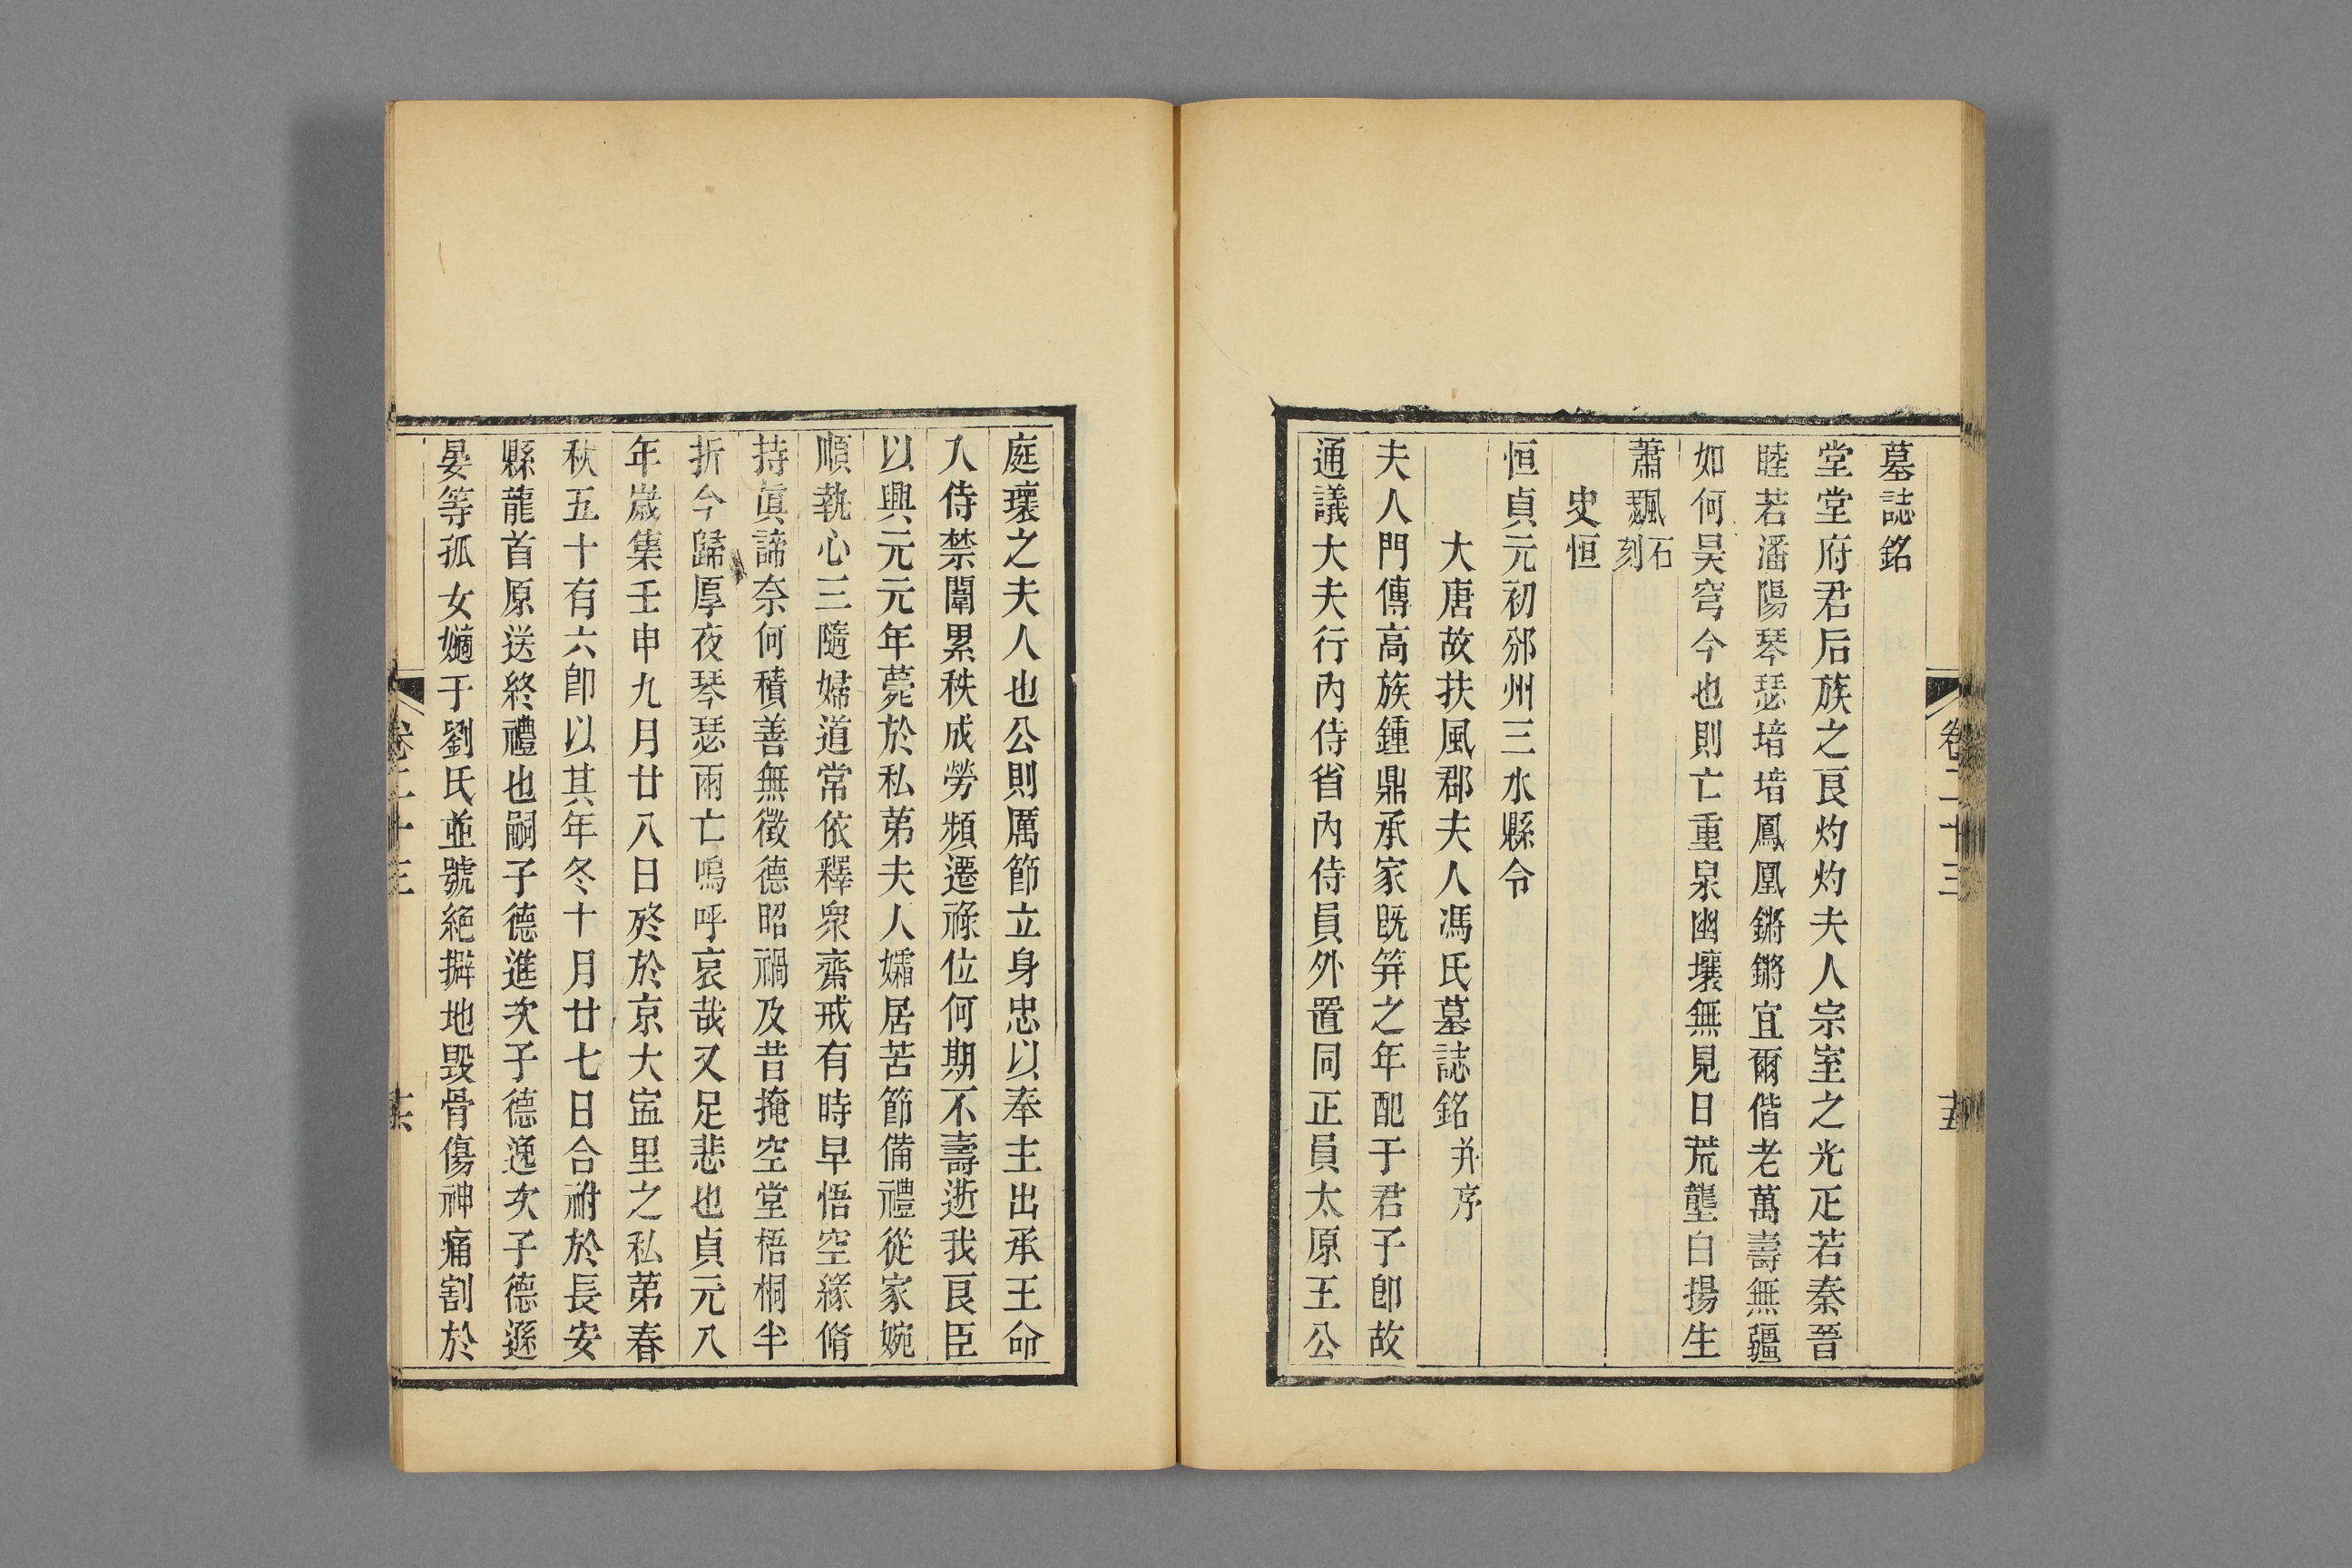 墓誌銘
堂堂府君后族之良灼灼夫人宗室之光疋若秦晉
睦若潘陽琴瑟堷堷鳳凰鏘鏘宜爾偕老萬壽無疆
如何昊穹今也則亡重泉幽壤無見日荒壟白揚生
蕭颽石刻
史恒
恒貞元初邠州三水縣令
大唐故扶風郡夫人馮氏墓誌銘并序
夫人門傳高族鍾鼎承家既笄之年配于君子卽故
通議大夫行內侍省內侍員外置同正員太原王公
庭瓌之夫人也公則厲節立身忠以奉主出承王命
入侍禁闈累秩成勞頻遷祿位何期不壽逝我良臣
以興元元年薨於私第夫人孀居苦節備禮從家婉
順執心三隨婦道常依釋衆齋戒有時早悟空緣脩
持眞諦奈何積善無徵德昭禍及昔掩空堂梧桐半
折今歸厚夜琴瑟兩亡嗚呼哀哉又足悲也貞元八
年歲集壬申九月廿八日終於京大寍里之私第春
秋五十有六卽以其年冬十月廿七日合祔於長安
縣龍首原送終禮也嗣子德進次子德逸次子德遜
晏等孤女嫡于劉氏並號絕擗地毀骨傷神痛割於
卷二十三